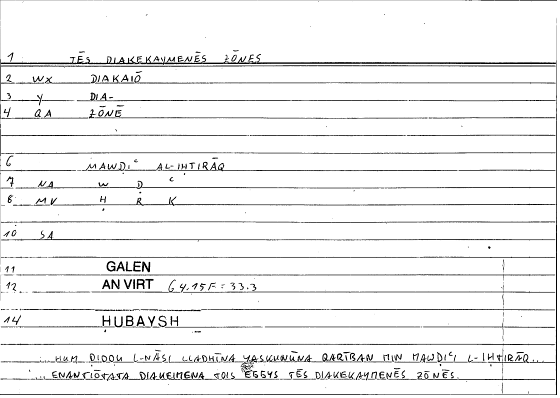 1 TĒS DIAKEKAYMENĒS ZŌNĒS
2 WX DIAKAIŌ
3 Y DIA-
4 QA ZŌNĒ
6 MAWḌIʿ AL-IḤTIRĀQ
7 NA W Ḍ ʿ
8 MV Ḥ R K
10 SA
11 GALEN
12 AN VIRT 64.15F = 33.3
14 HUBAYSH
...HUM ḌIDDU L-NĀSI LLADHĪNA YASKUNŪNA QARĪBAN MIN MAWḌIʿI L-IḤTIRĀQ...
... ENANTIŌTATA DIAKEIMENA TOIS EGGYS TĒS DIAKEKAYMENĒS ZŌNĒS.